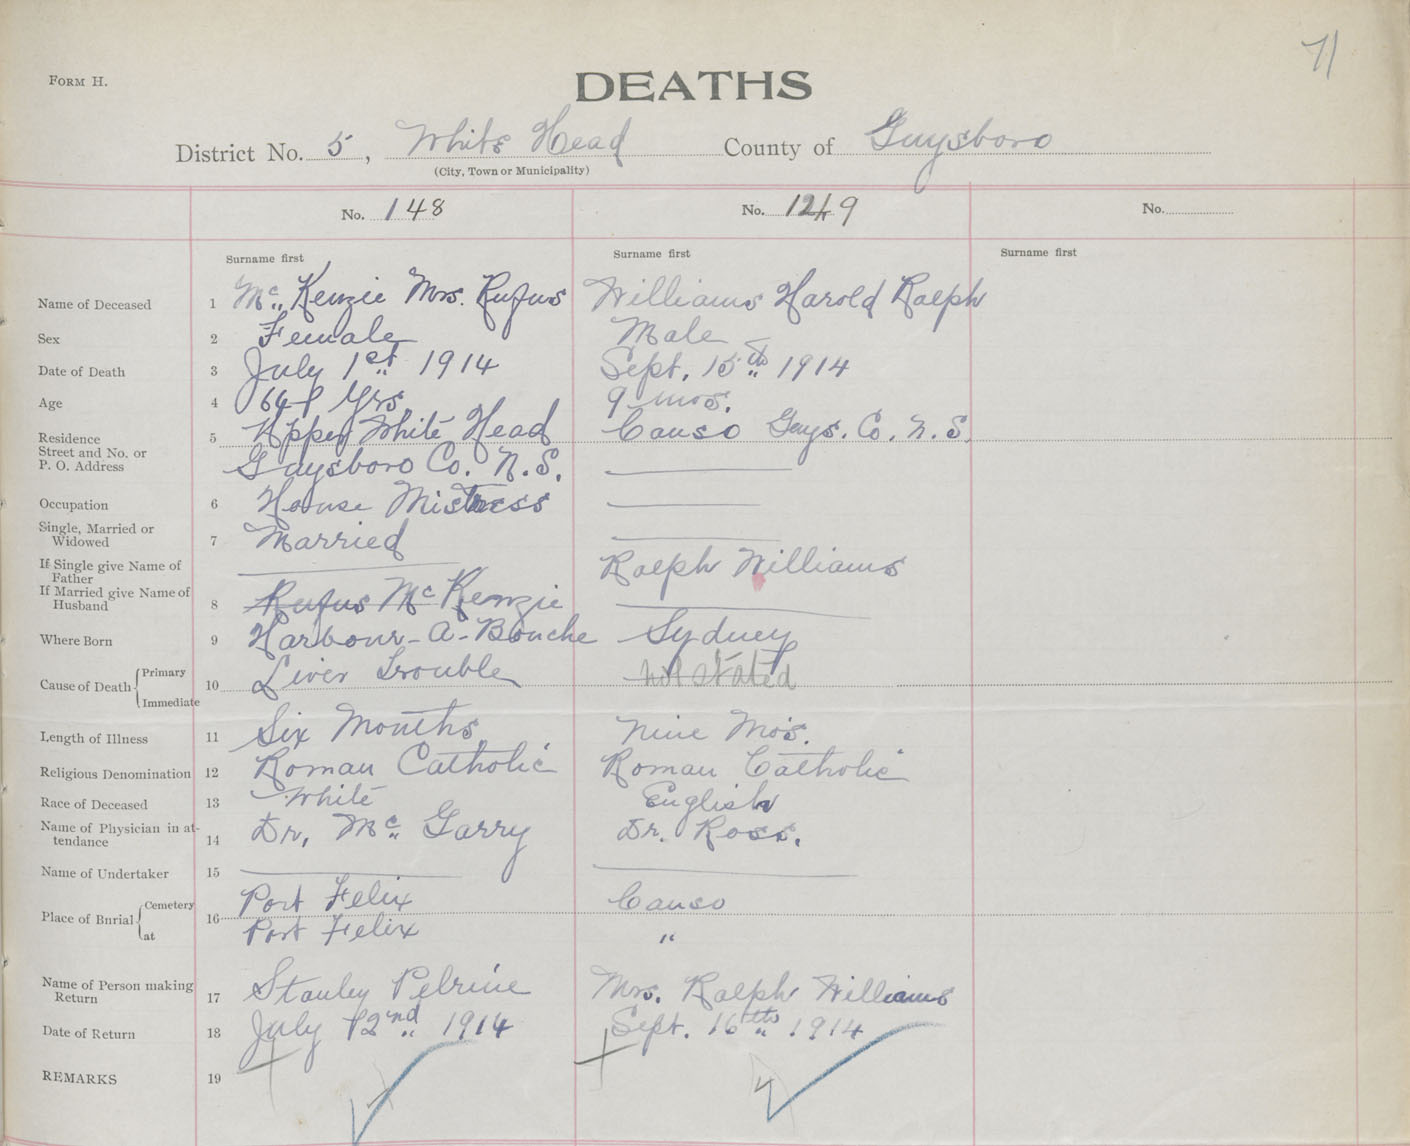 71
FORM H.
DEATHS
District No. 5, White Head County of Guysboro
(City, Town or Municipality)
No. 148 No. 1249 No.
Surname first Surname first Surname first
Name of Deceased 1 Mc. Kenzie Mrs. Rufus Williams Harold Ralph
Sex 2 Female Male
Date of Death 3 July 1st 1914 Sept. 15th 1914
Age 4 Yrs. 9 mos.
Residence 5 Upper White Head Canso Guys. Co. N. S.
Street and No. or
P. O. Address Guysboro Co. N. S.
Occupation 6 House Mistress
Single, Married or
Widowed 7 Married
If Single give Name of
Father Ralph Williams
If Married give Name of
Husband 8 Rufus Mc Kenzie
Where Born 9 Harbour-A-Bouche Sydney
Cause of Death { Primary Immediate 10 Liver Trouble not stated
Length of Illness 11 Six Months Nine Mo's.
Religious Denomination 12 Roman Catholic Roman Catholic
Race of Deceased 13 White English
Name of Physician in at-
tendance 14 Dr, Mc. Garry Dr. Ross.
Name of Undertaker 15
Place of Burial { Cemetery 16 Port Felix Canso
at Port Felix "
Name of Person making
Return 17 Stanley Pelrine Mrs. Ralph Williams
Date of Return 18 July 2nd 1914 Sept. 16th 1914
REMARKS 19